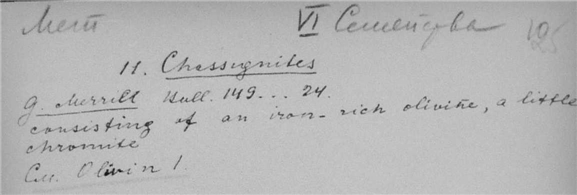 Мет VI Семейства 125
11. Chassignites
G. Merrill Bull. 149... 24.
consisting of an iron-rich olivine, a little
chromite
См. Olivin 1.